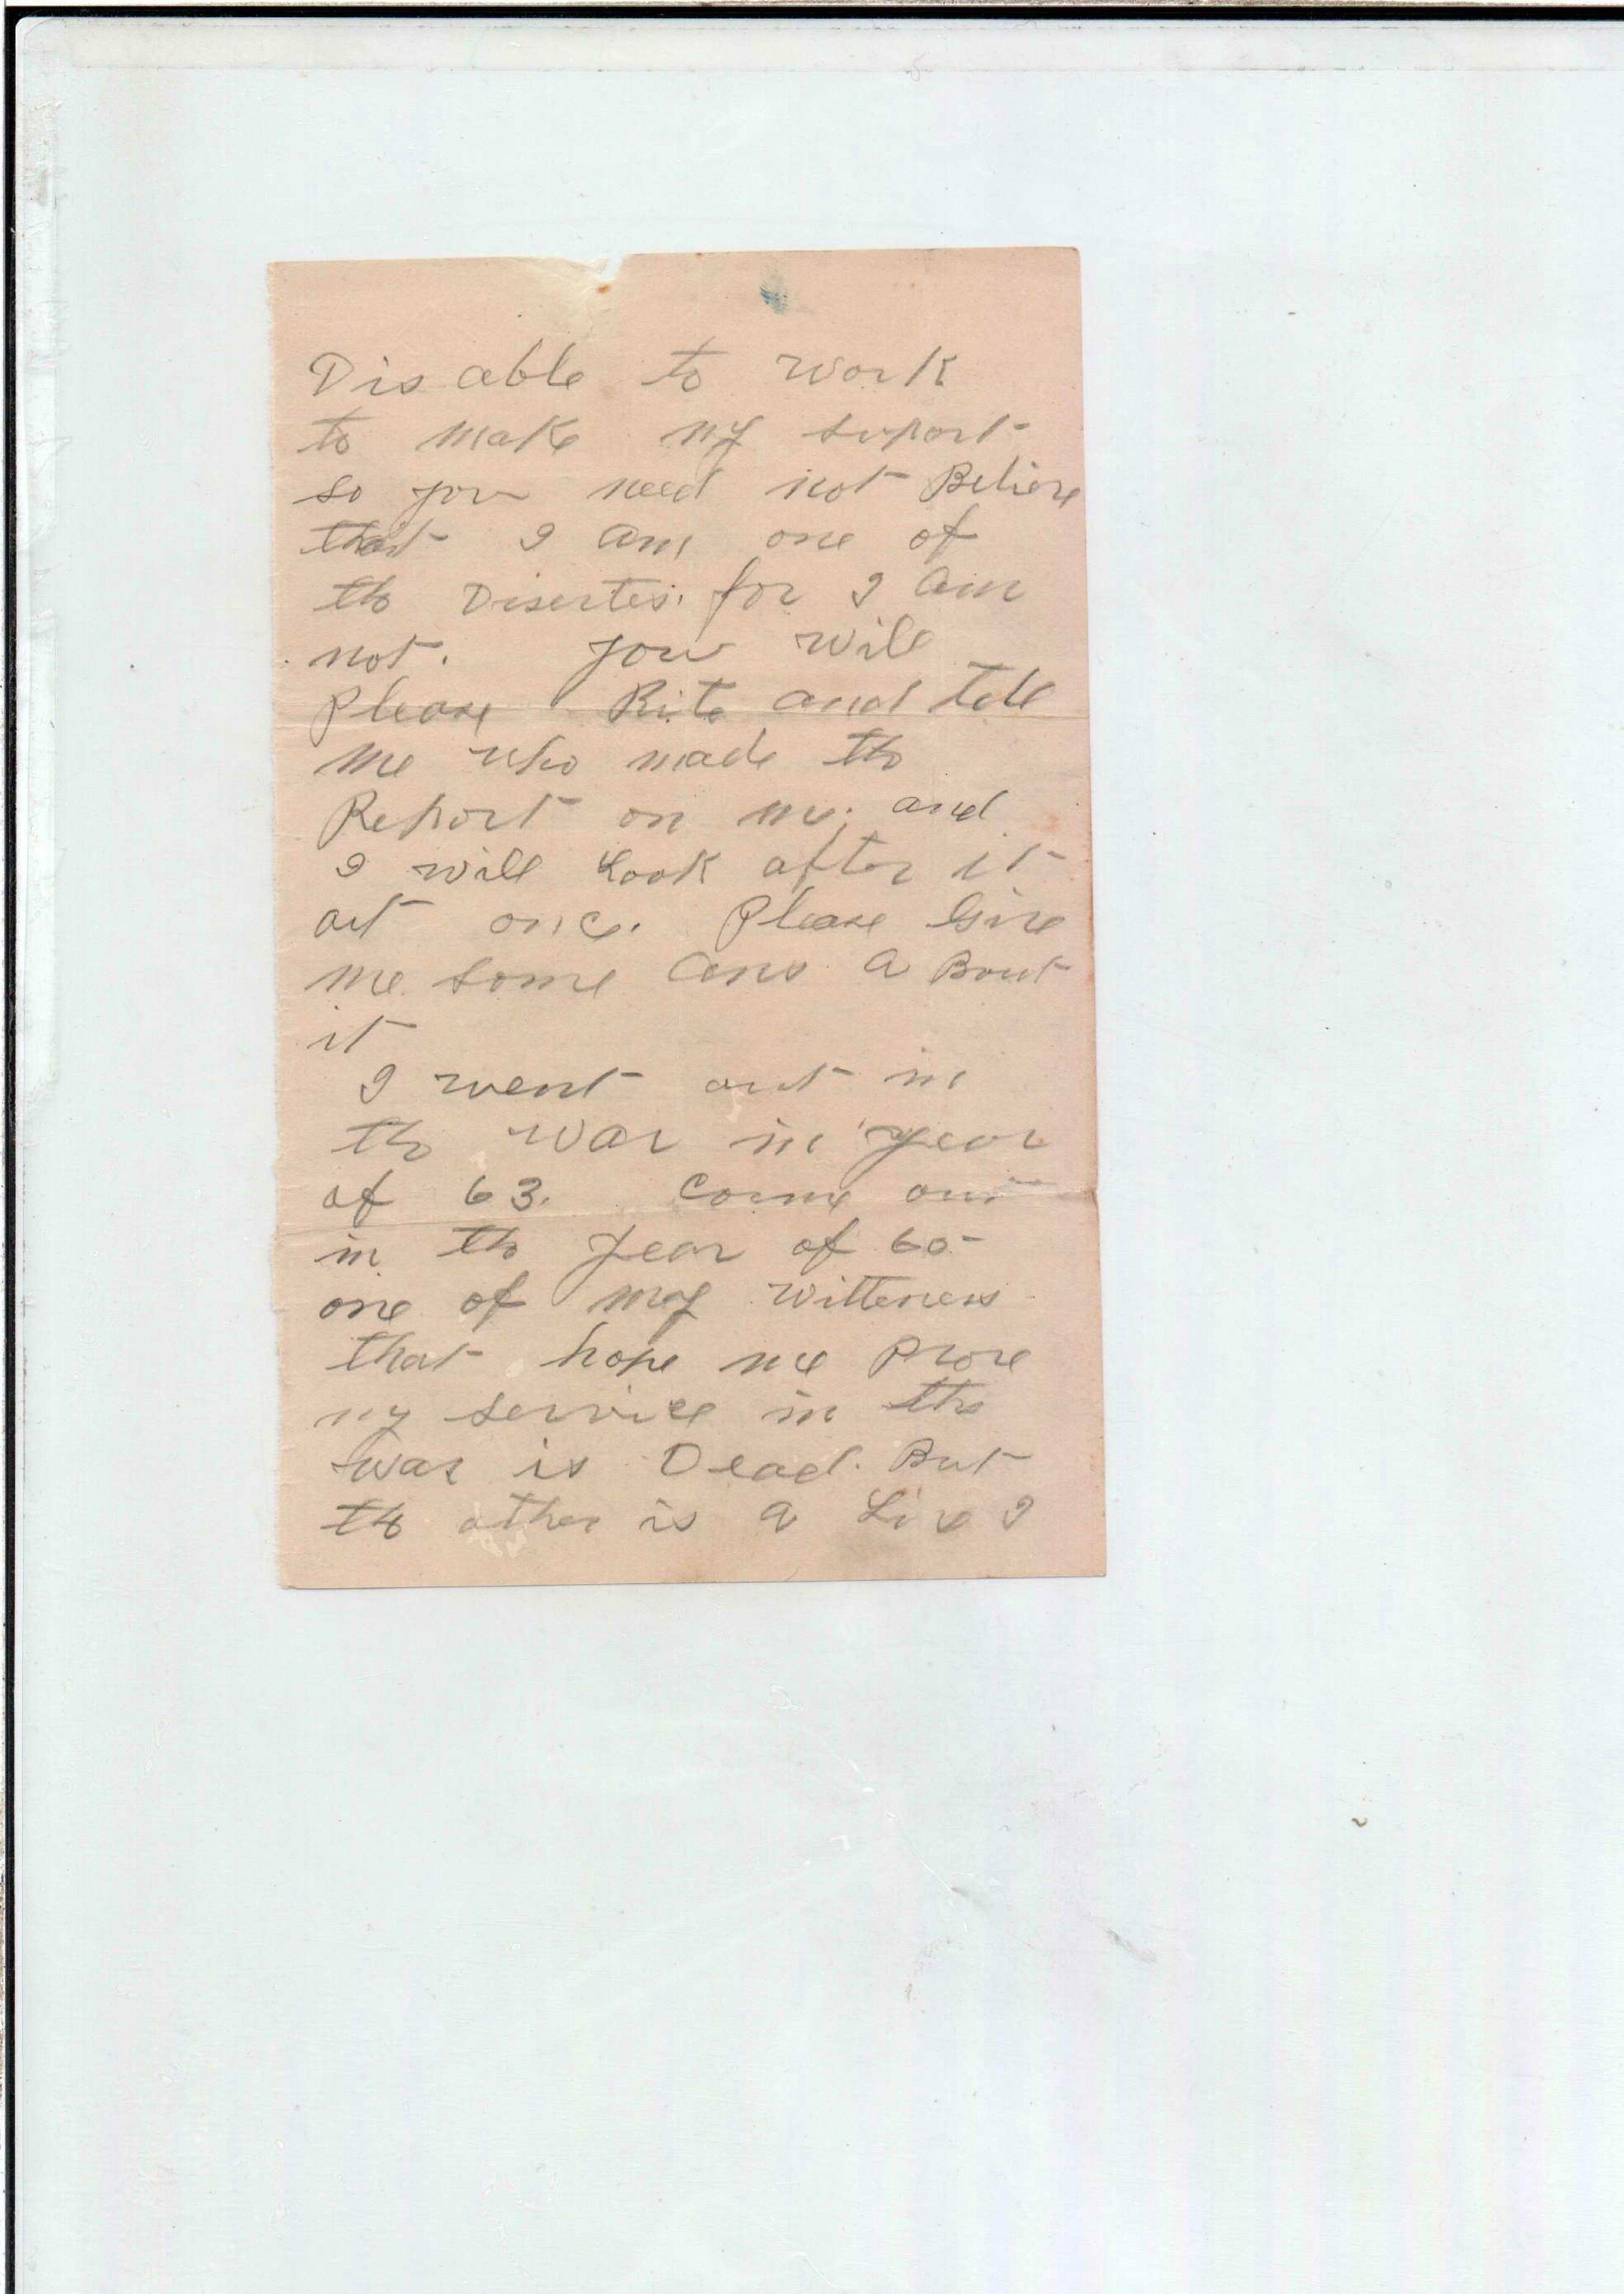 Dis able to work
to make my suport
so you need not Believe
that I am one of
the Disertes. for I am
not. you will
Please Rite and tell
me who made the
Report on me. and
I will Look after it
at once. Please Give
me some ans a Bout
it
I went out in
the war in year
of 63. Come out
in the year of 65
one of my witteness
that hope me prove
my service in the
war is Dead. But
the other is a Live I